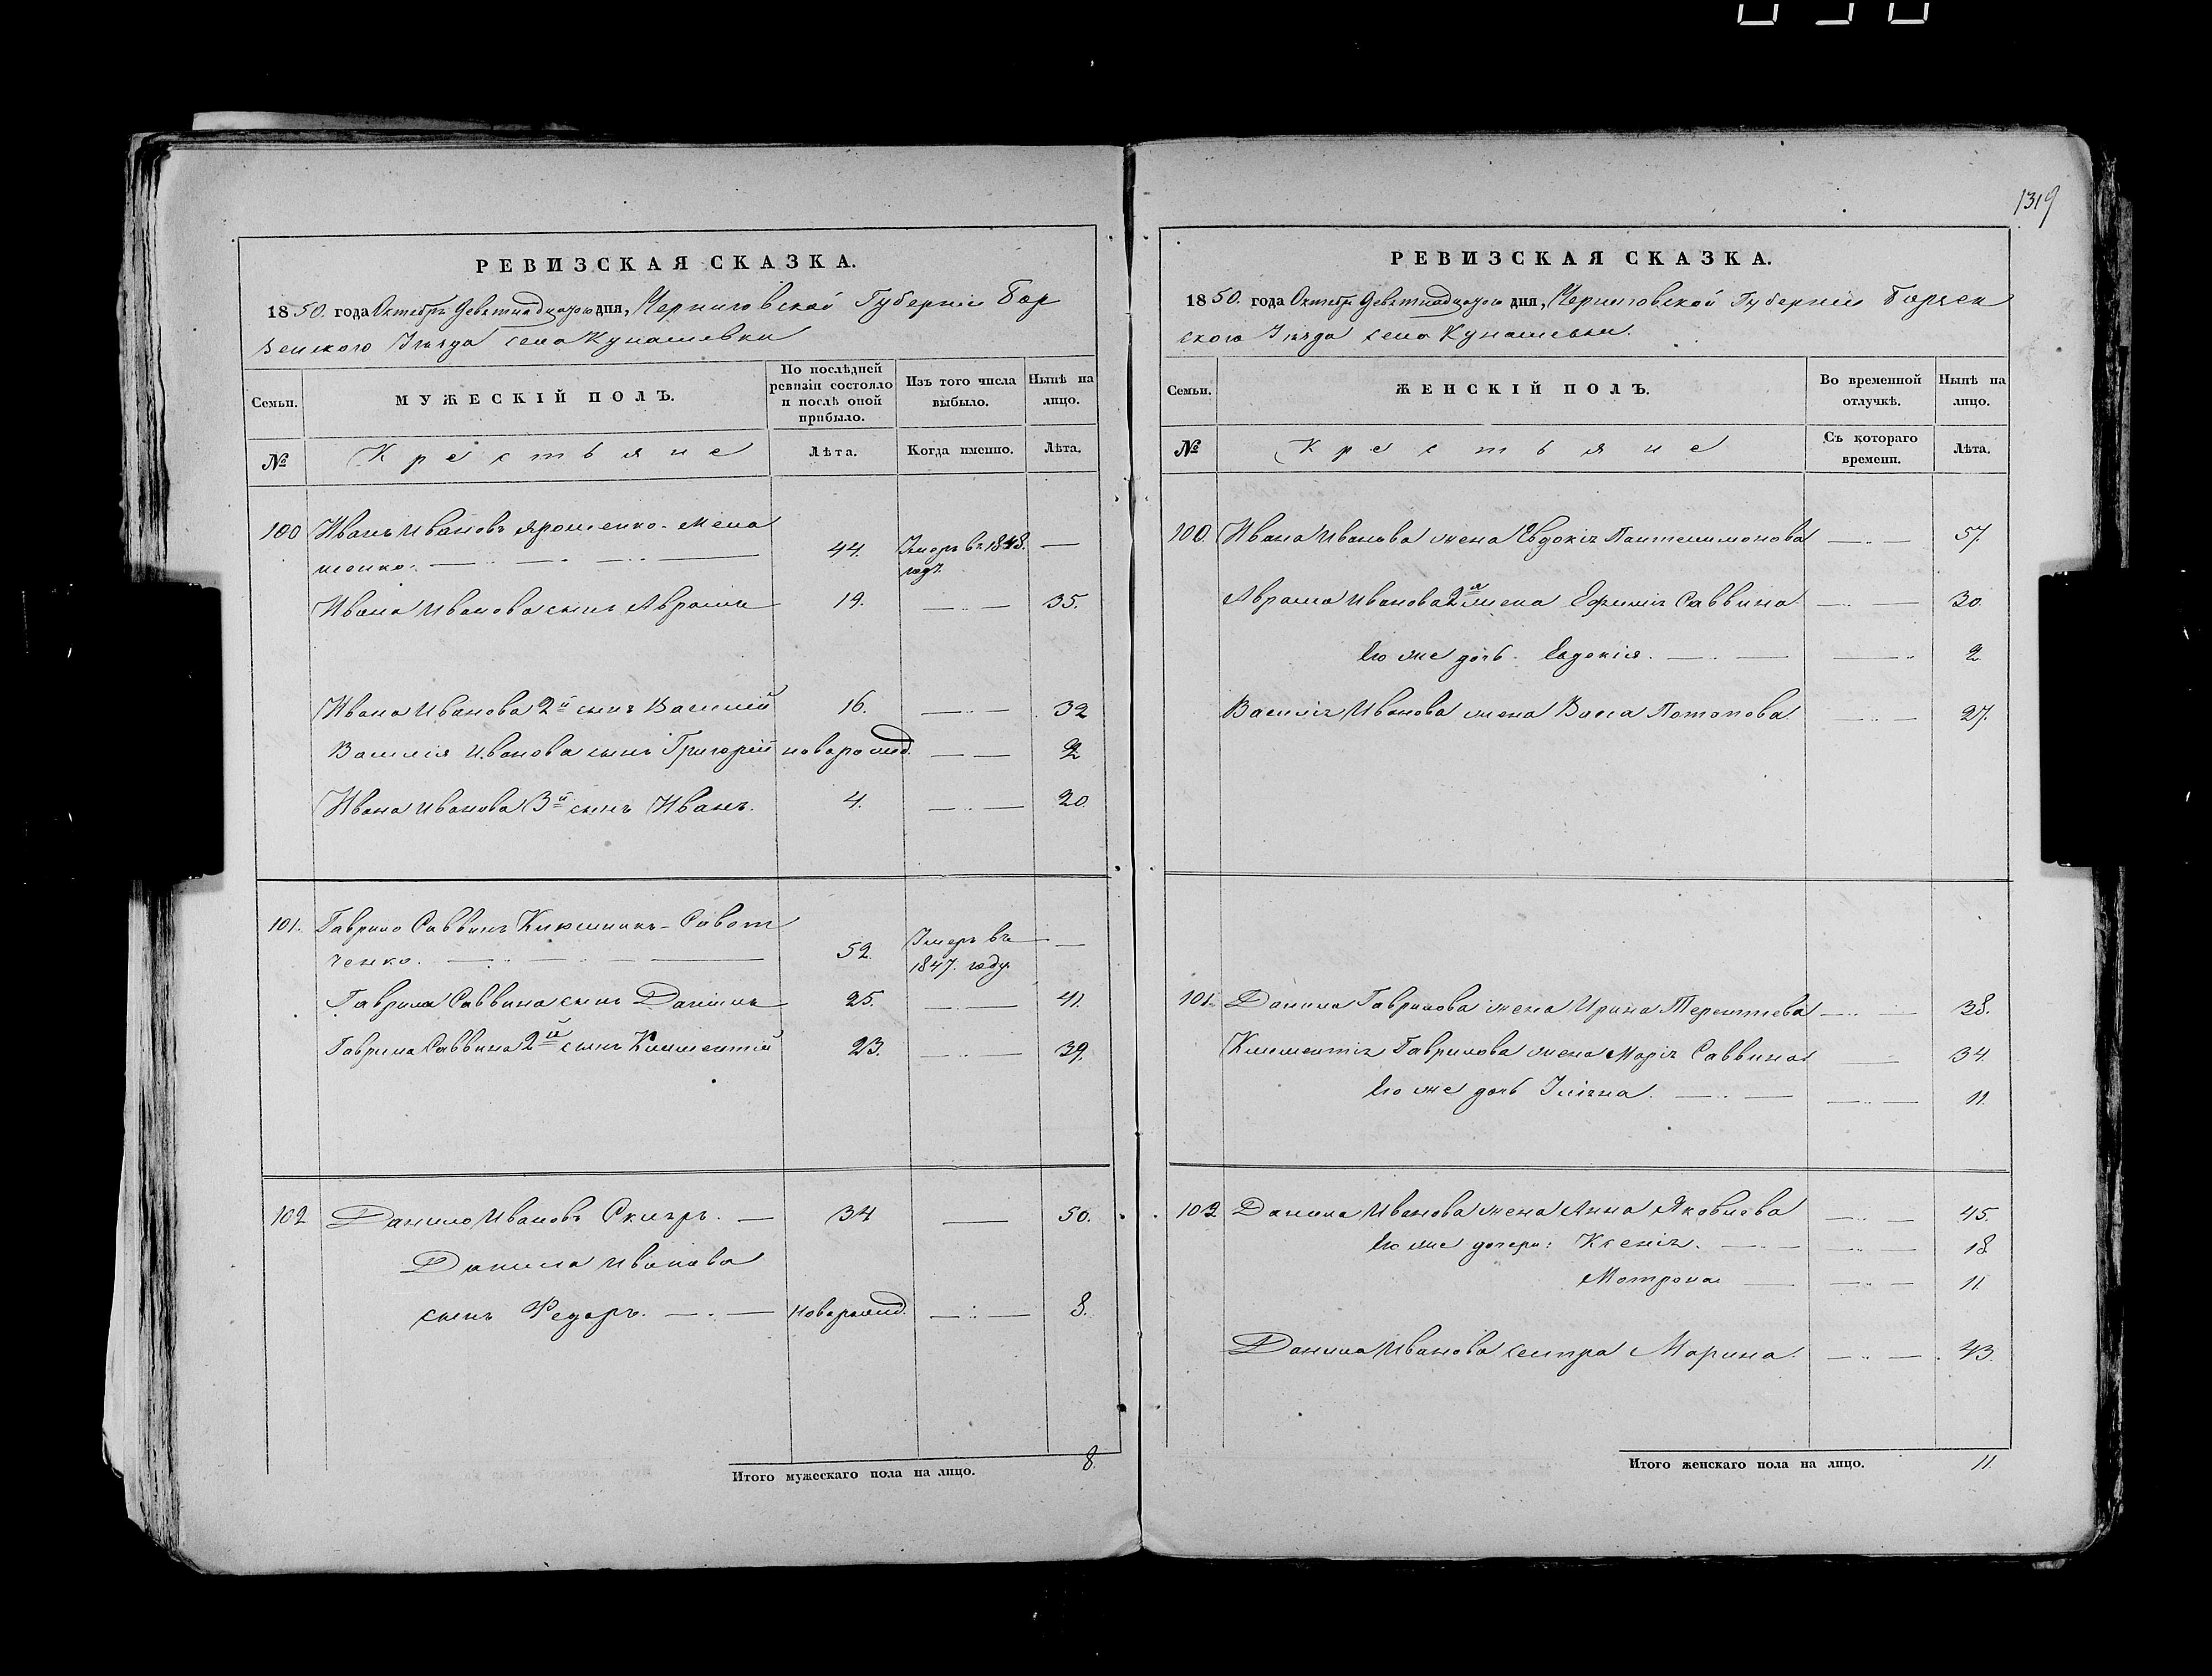 1319
РЕВИЗСКАЯ СКАЗКА.
1850. года Октября девятнадцатого дня, Черниговской Губерніи Бор
зенского Уѣзда села Кунашевки
Семьи. МУЖЕСКІЙ ПОЛЪ. По послѣдней ревизіи состояло и послѣ оной прибыло. Изъ того числа выбыло. Нынѣ на лицо.
№ Крестьяне Лѣта. Когда именно. Лѣта.
100 Иванъ Ивановъ Ярошенко-
44 Умеръ въ 1848. годѣ —
Ивана Иванова сынъ Аврамъ 19. — 35.
Ивана Иванова 2й сынъ Василій 16. — 32
Василія Иванова сынъ Григорій новорожд. — 2
Ивана Иванова 3й сынъ Иванъ. 4. — 20.
101. Гаврило Саввинъ - Савот
ченко. 52. Умеръ въ 1847. году. —
Гаврила Саввина сынъ Данило 25. — 41.
Гаврила Саввина 2й сынъ Климентій 23. — 39.
102 Данило Ивановъ Скляръ. — 34 — 50.
Данила Иванова
сынъ Федоръ. — новорожд. — 8.
Итого мужескаго пола на лицо. 8.
РЕВИЗСКАЯ СКАЗКА.
1850. года Октября девятнадцатого дня, Черниговской Губерніи Борзен
ского Уѣзда села Кунашевки.
Семьи. ЖЕНСКІЙ ПОЛЪ. Во временной отлучкѣ. Нынѣ на лицо.
№ Крестьяне Съ котораго времени. Лѣта.
100. Ивана Иванова жена Евдокія Пантелимонова — 57.
Аврама Иванова 2я жена Ефимія Саввина — 30.
Его же дочь Евдокія. — 2.
Василія Иванова жена Васса Потапова — 27.
101. Данила Гаврилова жена Ирина Терентіева — 38.
Климентія Гаврилова жена Марія Саввина — 34.
Его же дочь Уліяна. — 11.
102 Данила Иванова жена Анна Яковлева — 45.
Его же дочери: Ксенія. — 18
Мотрона — 11.
Данила Иванова сестра Марина. — 43.
Итого женскаго пола на лицо. 11.